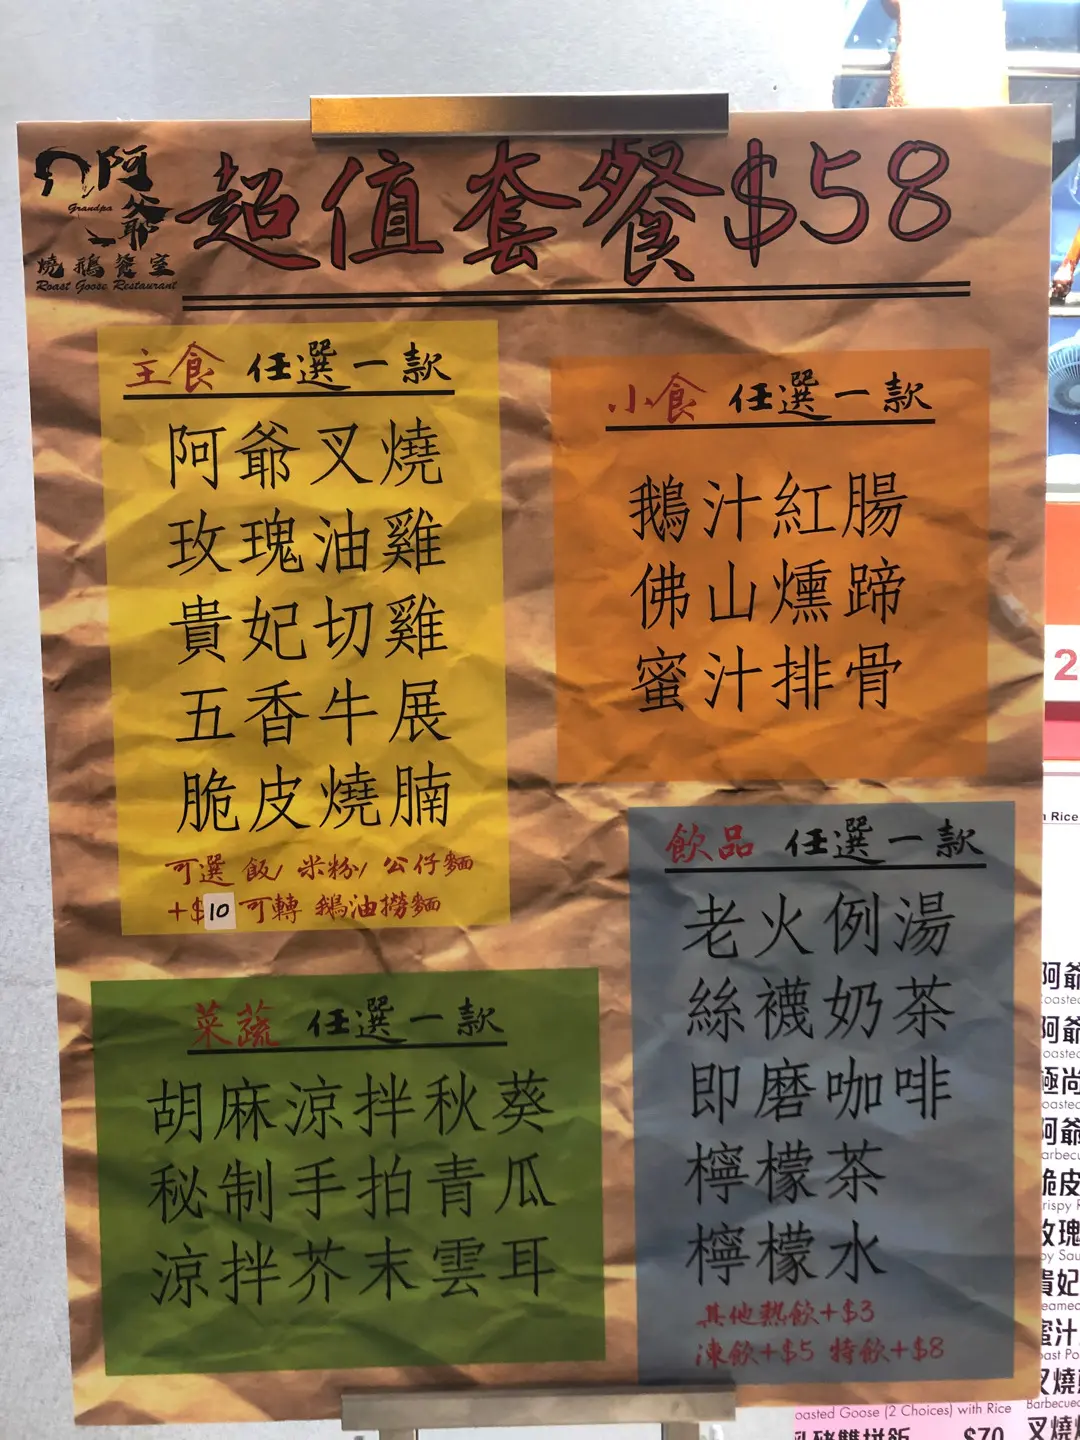 阿爺
Grandpa
燒鵝餐室
Roast Goose Restaurant
超值套餐$58
主食 任選一款
阿爺叉燒
玫瑰油雞
貴妃切雞
五香牛展
脆皮燒腩
可選 飯/ 米粉/ 公仔麵
+$10 可轉 鵝油撈麵
小食 任選一款
鵝汁紅腸
佛山燻蹄
蜜汁排骨
菜蔬 任選一款
胡麻涼拌秋葵
秘制手拍青瓜
涼拌芥末雲耳
飲品 任選一款
老火例湯
絲襪奶茶
即磨咖啡
檸檬茶
檸檬水
其他熱飲+$3
凍飲+$5 特飲+$8
2
Rice
阿爺
阿爺
極尚
阿爺
脆皮
玫瑰
貴妃
蜜汁
叉燒
Barbecued
oasted Goose (2 Choices) with Rice
乳豬雙拼飯 $70
叉燒